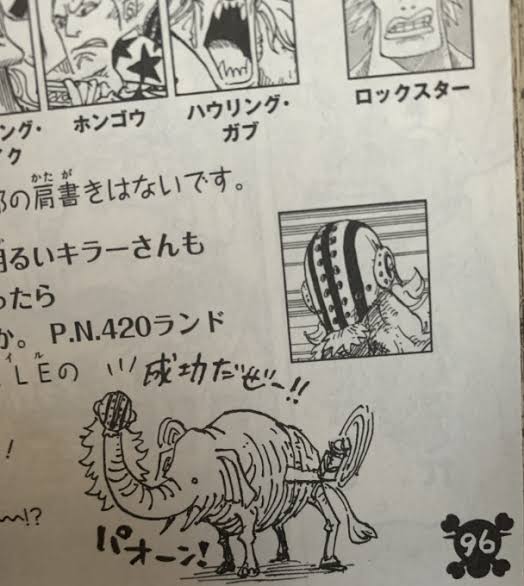 ング・
ク
ホンゴウ
ハウリング・
ガブ
ロックスター
かたが
の肩書きはないです。
明るいキラーさんも
ったら
か。 P.N.420ランド
イル
ILEの
成功だぜー!!
!
!?
パオーン!
96